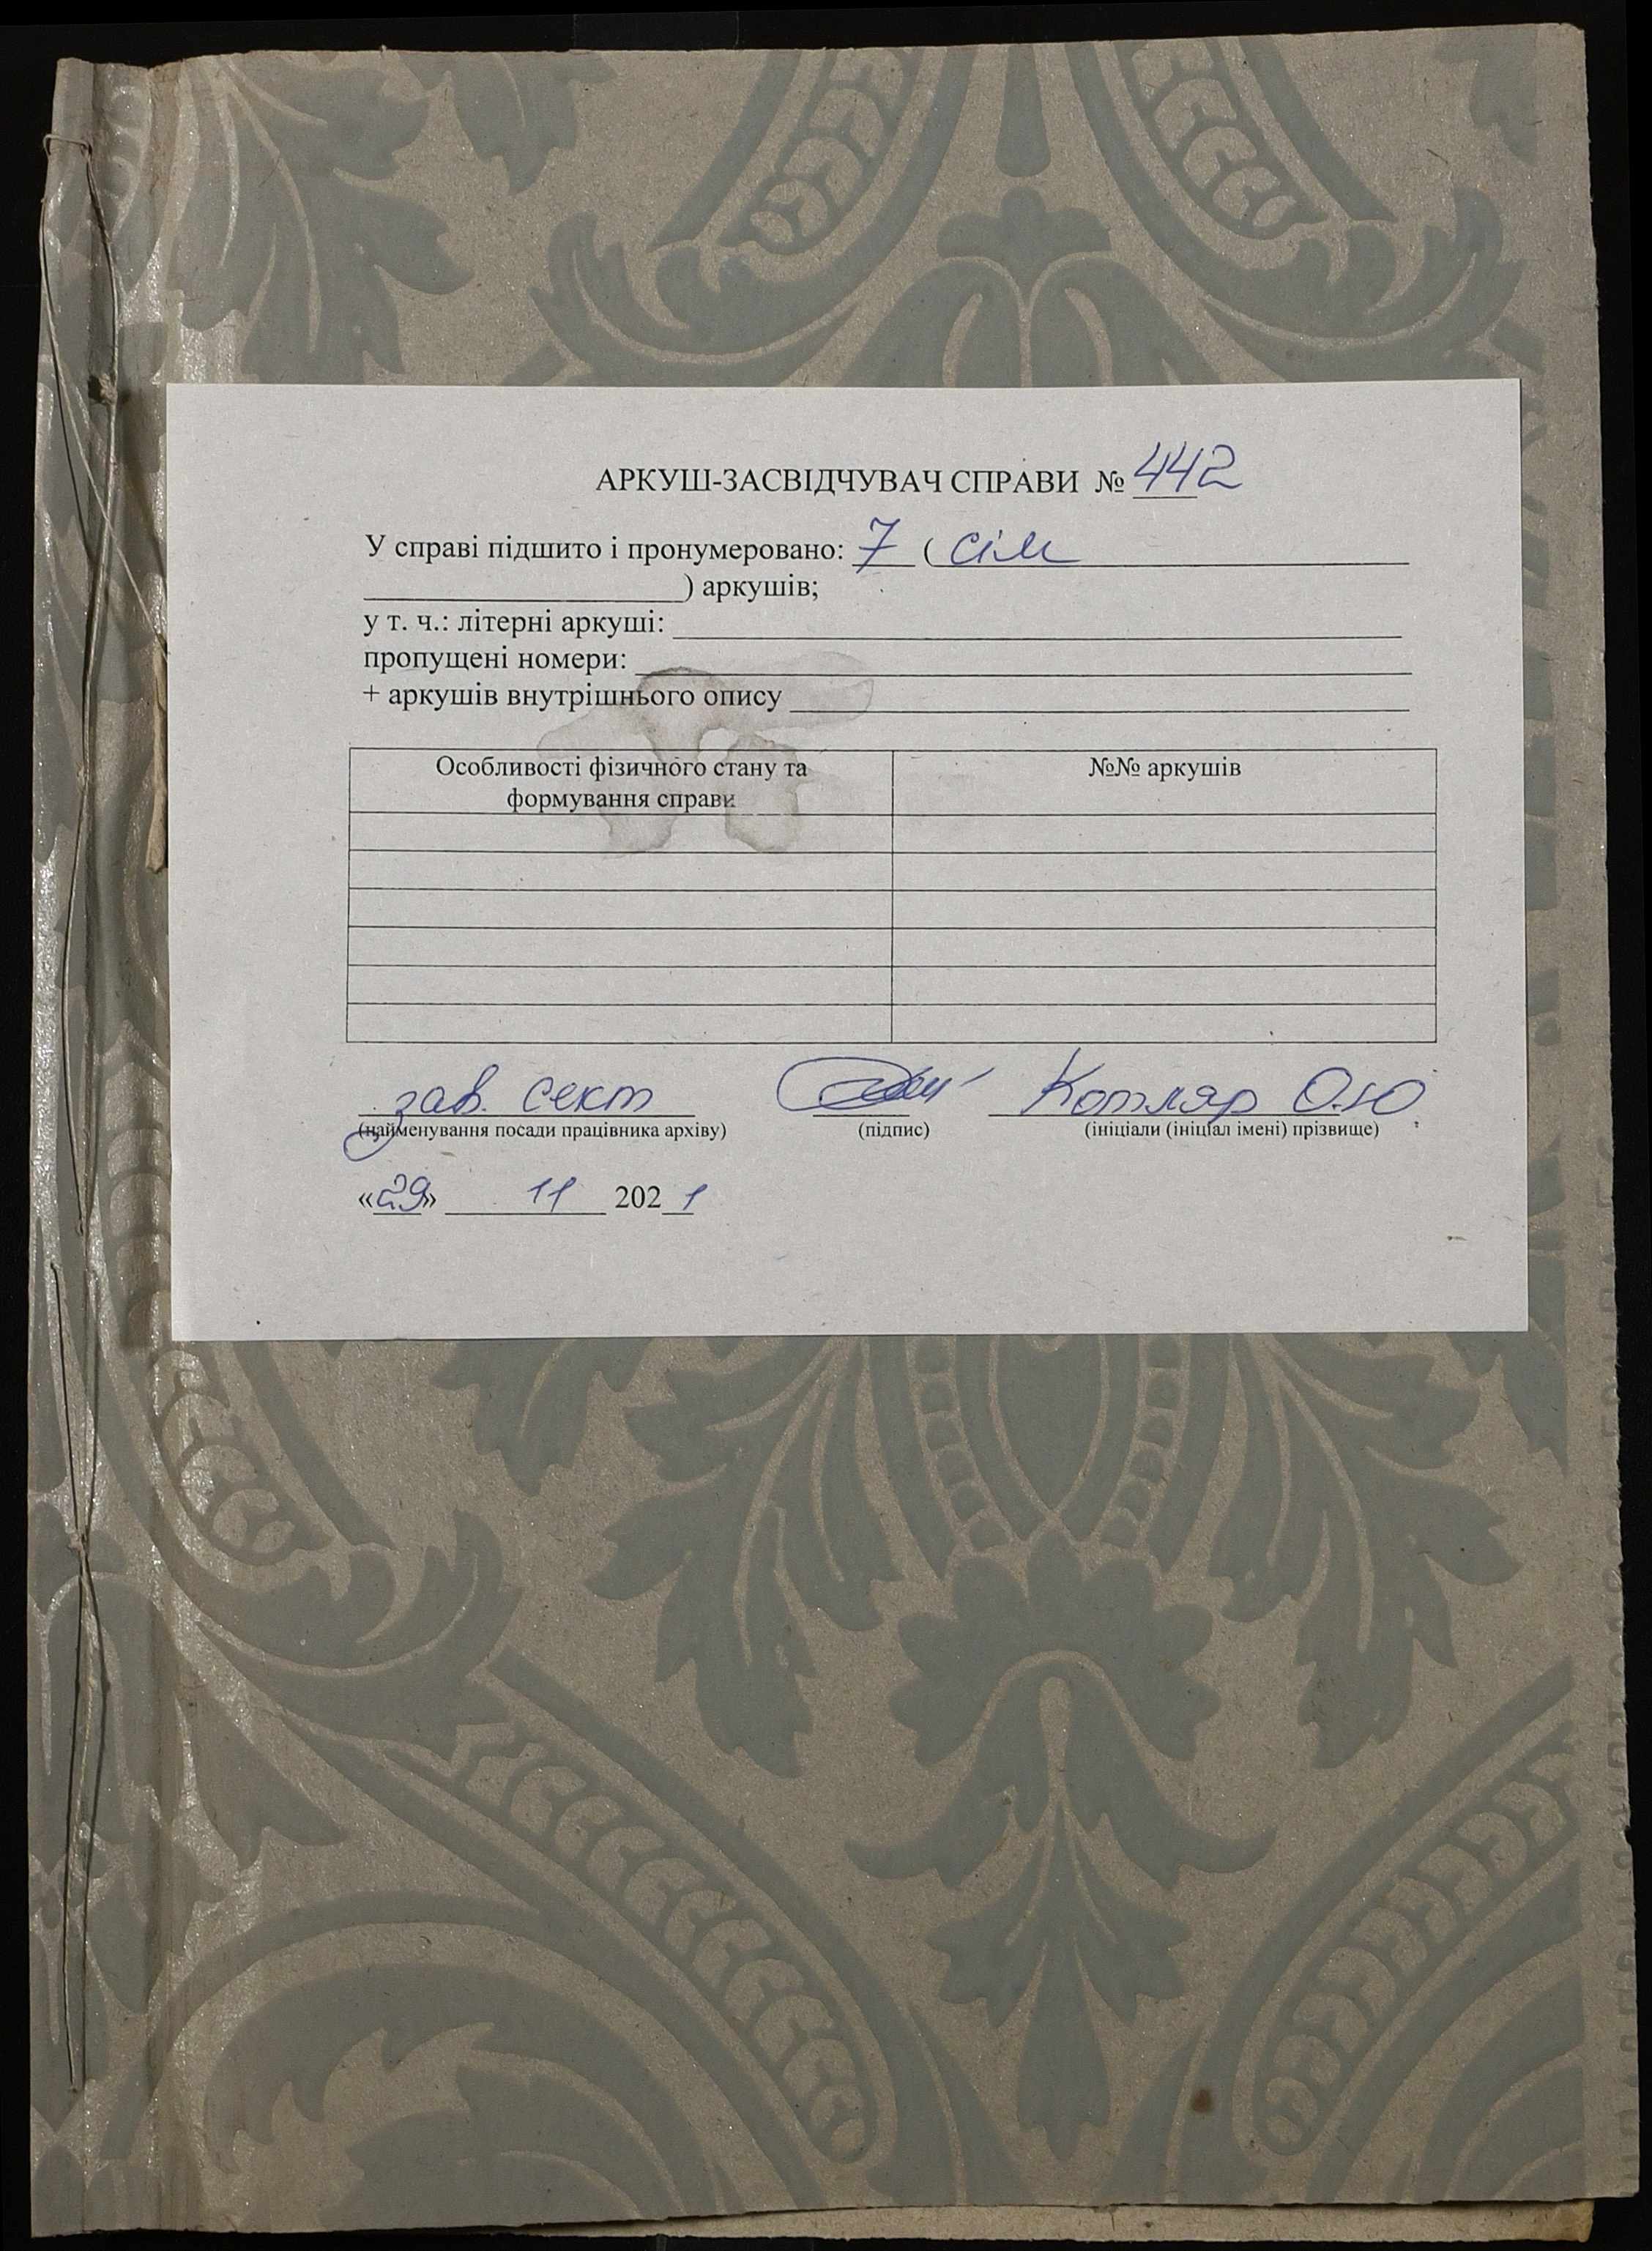 АРКУШ-ЗАСВІДЧУВАЧ СПРАВИ № 442
У справі підшито і пронумеровано: 7 ( сім
) аркушів;
у т. ч.: літерні аркуші:
пропущені номери:
+ аркушів внутрішнього опису
Особливості фізичного стану та №№ аркушів
формування справи
зав. сект Котляр О.Ю.
(найменування посади працівника архіву) (підпис) (ініціали (ініціал імені) прізвище)
«29» 11 2021